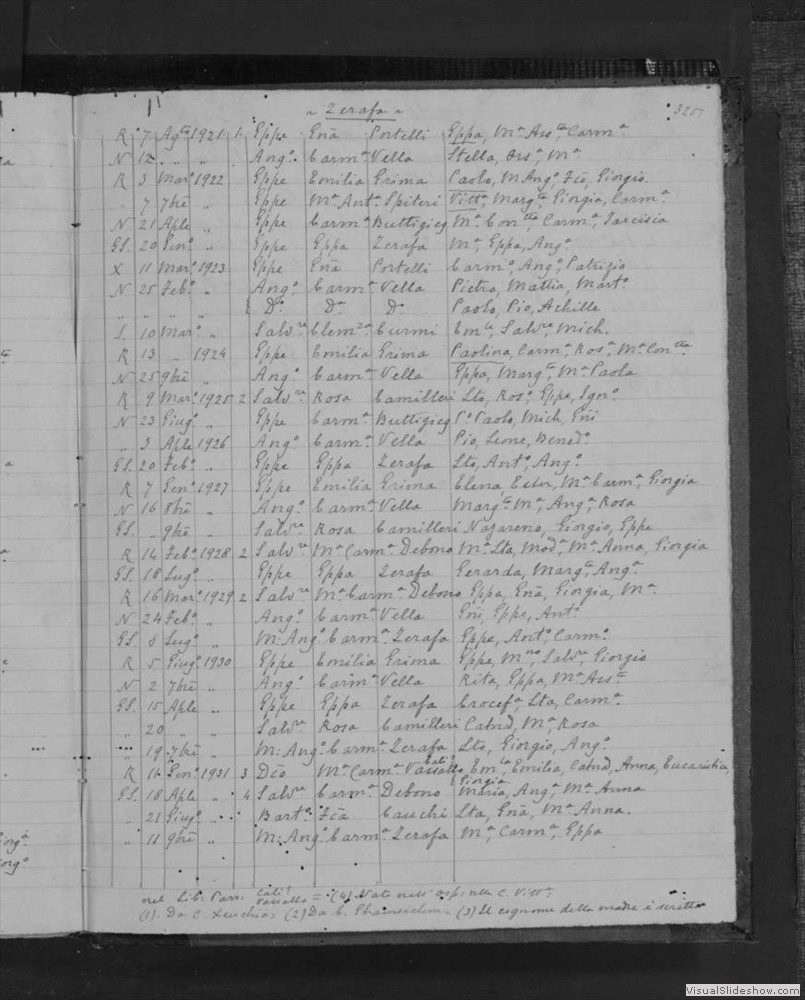 „ Zerafa „
325.
R 7 Agto 1921 1. Eppa Gnā Portelli Eppa, Ma Assta Carma
N 12 „ „ Ango. Carma Vella Stella, Ma
R 3 Marzo 1922 Eppe Emilia Grima Paolo, M. Ango, Fco, Giorgio.
„ 7 7bre „ Eppe Ma Anta Spiteri Vitta, Margta Giorgia, Carma
N 21 Aple „ Eppe Carma Buttigieg Ma Contta Carma, Tarcisia
GS. 20 Geno „ Eppe Eppa Zerafa Ma, Eppa, Anga
X 11 Marzo 1923 Eppe Gnā Portelli Carmo, Ango, Patrizio
N 25 Febo „ Ango. Carma Vella Pietro, Mattia, Marto
„ „ „ „ { Do Da Do Paolo, Pio, Achille
S. 10 Marzo „ Salvre Clemza Curmi Emle, Salvre, Mich.
R 13 „ 1924 Eppe Emilia Grima Paolina, Carma, Rosa, Ma Contta
N 25 9bre „ Ango. Carma Vella Eppa, Margta, Ma Paola
R 9 Marzo 1925 2 Salvre Rosa Camilleri Lto, Roso, Eppe, Igno
N 23 Giugo „ Eppe Carma Buttigieg Po Paolo, Mich, Gni
„ 3 Aple 1926 Ango. Carma Vella Pio, Leone, Benedo
GS. 20 Febo „ Eppe Eppa Zerafa Lto, Anto, Ango
R 7 Geno 1927 Eppe Emilia Grima Elena, Ester, Ma Carma, Giorgia
N 16 8bre „ Ango. Carma Vella Margta Ma, Anga Rosa
GS. „ 9bre „ Salvre Rosa Camilleri Nazareno, Giorgio, Eppe
R 14 Febo 1928 2 Salvre Ma Carma Debono Ma Lta, Mada, Ma Anna, Giorgia
GS. 18 Lugo „ Eppe Eppa Zerafa Gerarda, Margta, Anga
R 16 Marzo 1929 2 Salvre Ma Carma Debono Eppa, Gnā, Giorgia, Ma
N 24 Febo „ Ango. Carma Vella Gni, Eppe, Anto
GS. 8 Lugo „ M. Ango. Carma Zerafa Eppe, Anto, Carmo
R 5 Giugo 1930 Eppe Emilia Grima Eppe, Mno, Salvre, Giorgio
N 2 7bre „ Ango. Carma Vella Rita, Eppa, Ma Assta
GS. 15 Aple „ Eppe Eppa Zerafa Crocefa Lta, Carma
„ 20 „ „ Salvre Rosa Camilleri Catnd, Ma, Rosa
„ 19 7bre „ M. Ango. Carma Zerafa Lto, Giorgio, Ango
R 14 Geno 1931 3 Dco Ma Carma Cali Vassallo, Emla, Emilia, Catnd, Anna, Eucaristica, Giorgia
GS. 18 Aple „ 4 Salvre Carma Debono Maria, Anga, Ma Anna
„ 21 Giugo „ Barto. Fca Cauchi Lta, Gnā, Ma Anna.
„ 11 9bre „ M. Ango. Carma Zerafa Ma, Carma, Eppa
nel Lib. Parr. Cali? Vassallo = (4) Nato nell' osp: nella C. Vitta
(1). Da C. Xeuchia = (2) Da C. = (3) Il cognome della madre è scritto
VisualSlideshow.com